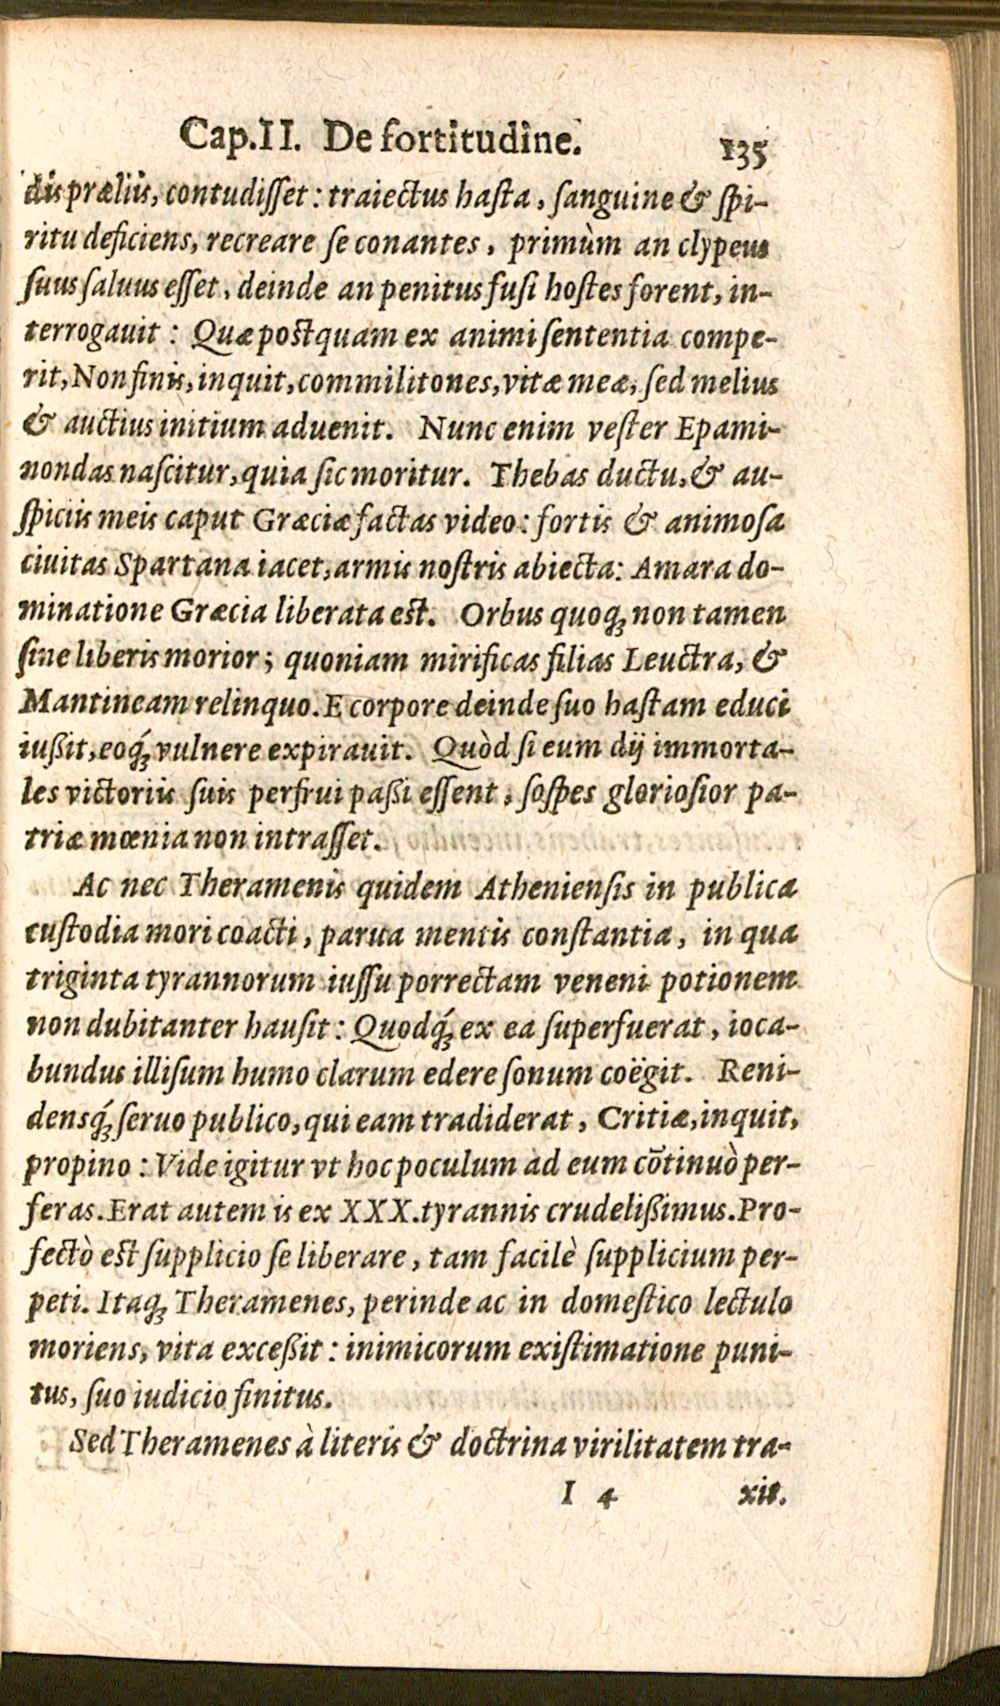 Cap. II. De fortitudine. 135
dis præliis, contudiſſet: traiectus haſta, ſanguine & ſpi-
ritu deficiens, recreare ſe conantes, primùm an clypeus
ſuus ſaluus eſſet, deinde an penitus fuſi hoſtes forent, in-
terrogauit: Quæ postquam ex animi ſententia compe-
rit, Non finis, inquit, commilitones, vitæ meæ, ſed melius
& auctius initium aduenit. Nunc enim veſter Epami-
nondas naſcitur, quia ſic moritur. Thebas ductu, & au-
ſpiciis meis caput Græciæ factas video: fortis & animoſa
ciuitas Spartana iacet, armis noſtris abiecta: Amara do-
minatione Græcia liberata est. Orbus quoq; non tamen
ſine liberis morior; quoniam mirificas filias Leuctra, &
Mantineam relinquo. E corpore deinde ſuo haſtam educi
iußit, eoq́; vulnere expirauit. Quòd ſi eum dij immorta-
les victoriis ſuis perfrui paßi eſſent, ſoſpes glorioſior pa-
triæ mœnia non intraſſet.
Ac nec Theramenis quidem Athenienſis in publica
cuſtodia mori coacti, parua mentis conſtantia, in qua
triginta tyrannorum iuſſu porrectam veneni potionem
non dubitanter hauſit: Quodq́; ex ea ſuperfuerat, ioca-
bundus illiſum humo clarum edere ſonum coëgit. Reni-
densq́; ſeruo publico, qui eam tradiderat, Critiæ, inquit,
propino: Vide igitur vt hoc poculum ad eum cōtinuò per-
feras. Erat autem is ex XXX. tyrannis crudelißimus. Pro-
fectò est ſupplicio ſe liberare, tam facilè ſupplicium per-
peti. Itaq; Theramenes, perinde ac in domeſtico lectulo
moriens, vita exceßit: inimicorum exiſtimatione puni-
tus, ſuo iudicio finitus.
Sed Theramenes à literis & doctrina virilitatem tra-
I 4 xit.